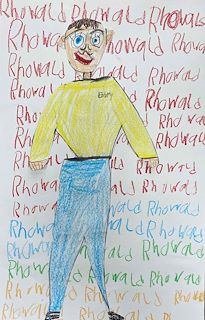 Rhowald Rhowald Rhowald
Rhowald Rhowald Rhowald
Rhowald Rhowald
Rhowald Rhowald
Rhowald Rhowald
Rhowald Rhowald
Rhowald Rhowald
Rhowald Rhowald
Rhowald Rhowald
Rhowald Rhowald Rhowald
Rhowald Rhowald Rhowald
Rhowald Rhowald Rhowald
Rhowald Rhowald Rhowald
Rhowald Rhowald
Rhowald Rhowald